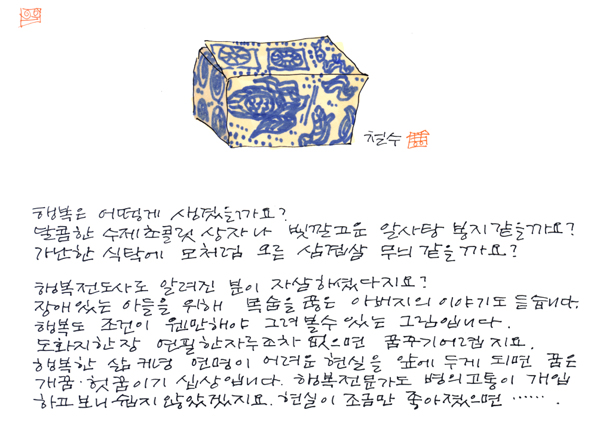 철수
행복은 어떻게 생겼을까요?
달콤한 수제초콜릿 상자나 빛깔고운 알사탕 봉지같을까요?
가난한 식탁에 모처럼 오른 삼겹살 무늬 같을까요?
행복전도사로 알려진 분이 자살하셨다지요?
장애있는 아들을 위해 목숨을 끊은 아버지의 이야기도 듣습니다.
행복도 조건이 웬만해야 그려볼수 있는 그림입니다.
도화지한장 연필한자루조차 없으면 꿈꾸기어렵지요.
행복한 삶 커녕 연명이 어려운 현실을 앞에 두게 되면 꿈은
개꿈·헛꿈이기 십상입니다. 행복전문가도 병의고통이 개입
하고보니 쉽지 않았겠지요. 현실이 조금만 좋아졌으면 …….